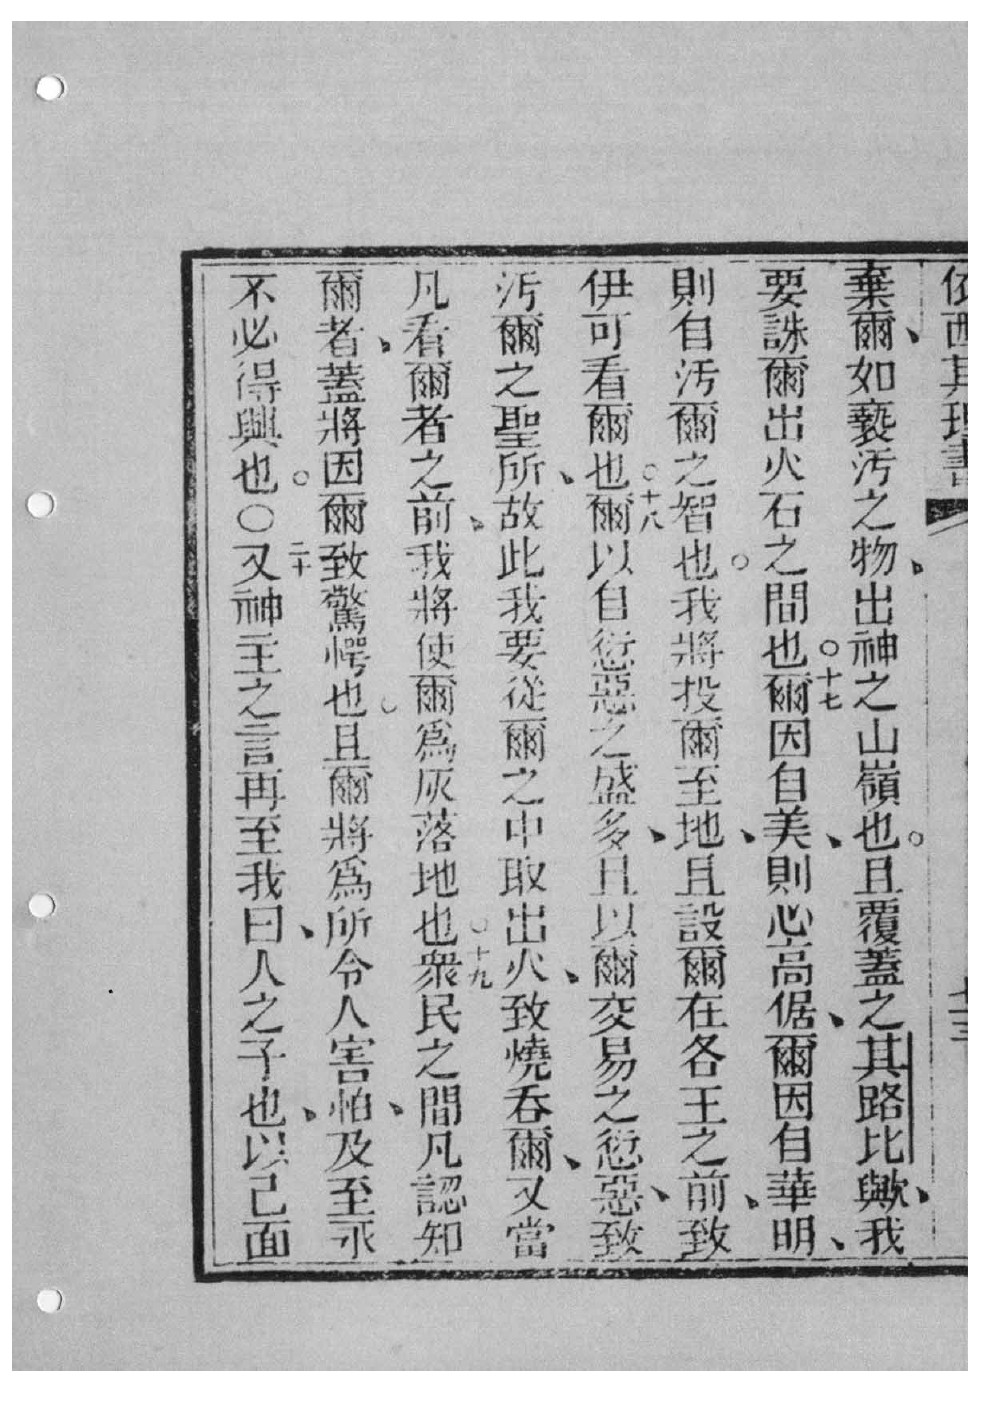 依西其理書
棄爾、如褻汚之物、出神之山嶺也。且覆蓋之其路比歟、我
要誅爾出火石之間也。○十七爾因自美、則心高倨、爾因自華明、
則自汚爾之智也。我將投爾至地、且設爾在各王之前、致
伊可看爾也。○十八爾以自愆惡之盛多、且以爾交易之愆惡、致
汚爾之聖所、故此我要從爾之中取出火、致燒吞爾、又當
凡看爾者之前、我將使爾爲灰落地也。○十九衆民之間凡認知
爾者、蓋將因爾致驚愕也。且爾將爲所令人害怕、及至永
不必得興也。○二十又神主之言再至我曰、人之子也、以己面